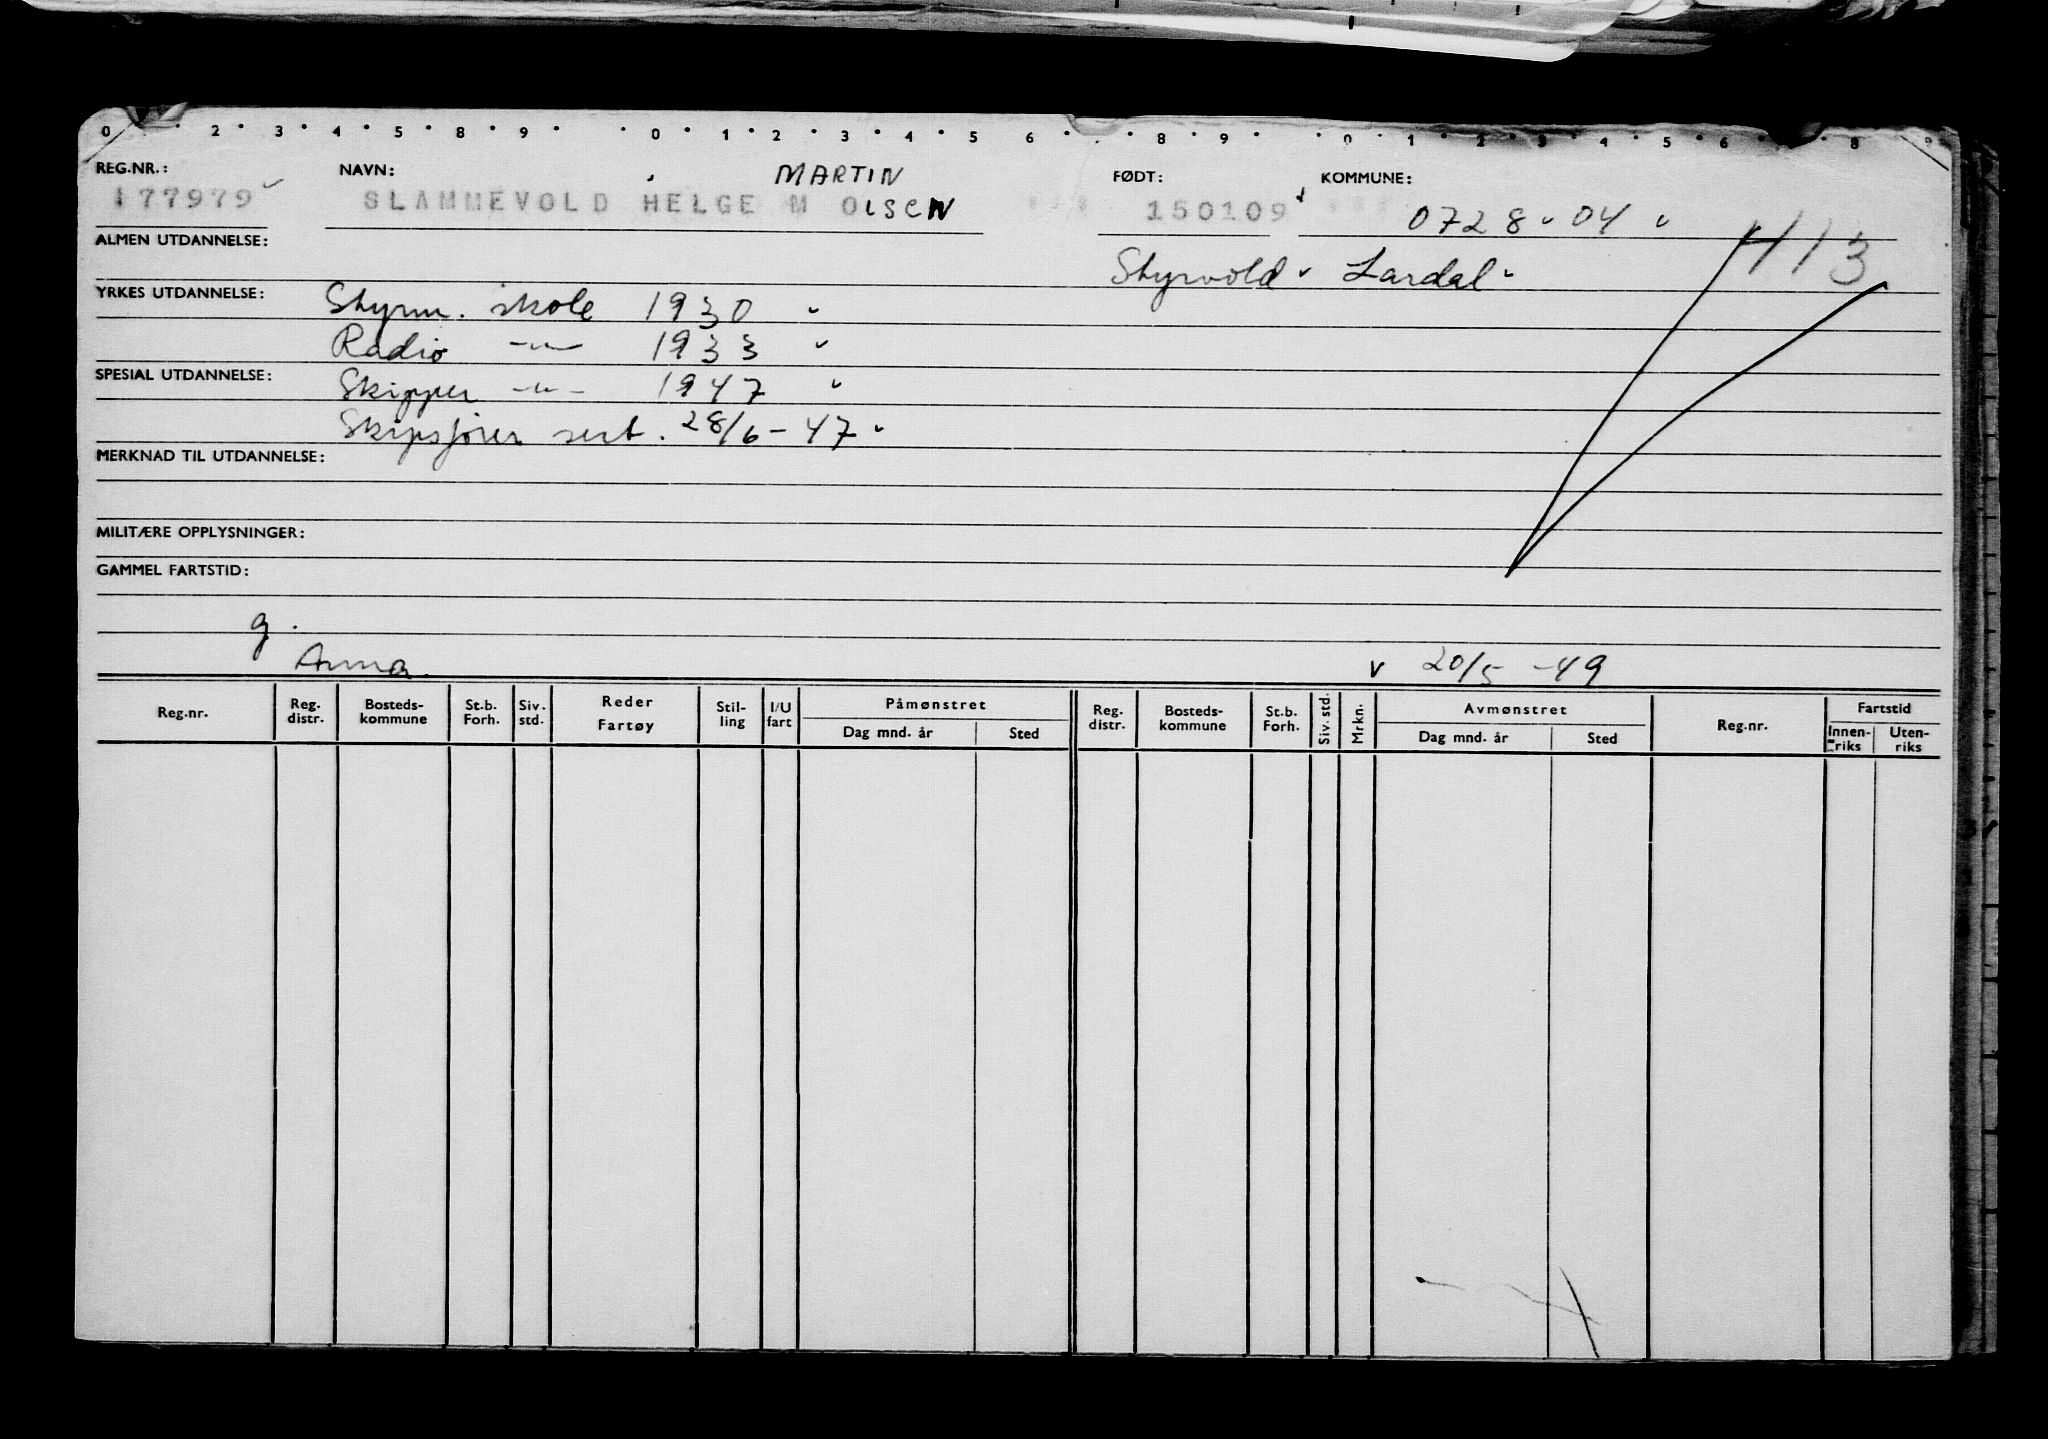 0 2 3 4 5 8 9 0 1 2 3 4 5 6 8 9 0 1 2 3 4 5 6 8 9
REG.NR.: NAVN: MARTIN FØDT: KOMMUNE:
177979 SLAMMEVOLD HELGE M OLSEN 150109 0728-04
ALMEN UTDANNELSE: 413
Styrvold Lardal
YRKES UTDANNELSE: Styrm. skole 1930
Radio -"- 1933
SPESIAL UTDANNELSE: Skipper -"- 1947
Skipsfører sert. 28/6-47
MERKNAD TIL UTDANNELSE:
MILITÆRE OPPLYSNINGER:
GAMMEL FARTSTID:
g.
Anna v 20/5-49
Reg.nr. Reg. distr. Bosteds-kommune St.b. Forh. Siv. std. Reder Fartøy Stil-ling I/U fart Påmønstret Dag mnd. år Sted Reg. distr. Bosteds-kommune St.b. Forh. Siv. std. Mrkn. Avmønstret Dag mnd. år Sted Reg.nr. Fartstid Innen-riks Uten-riks